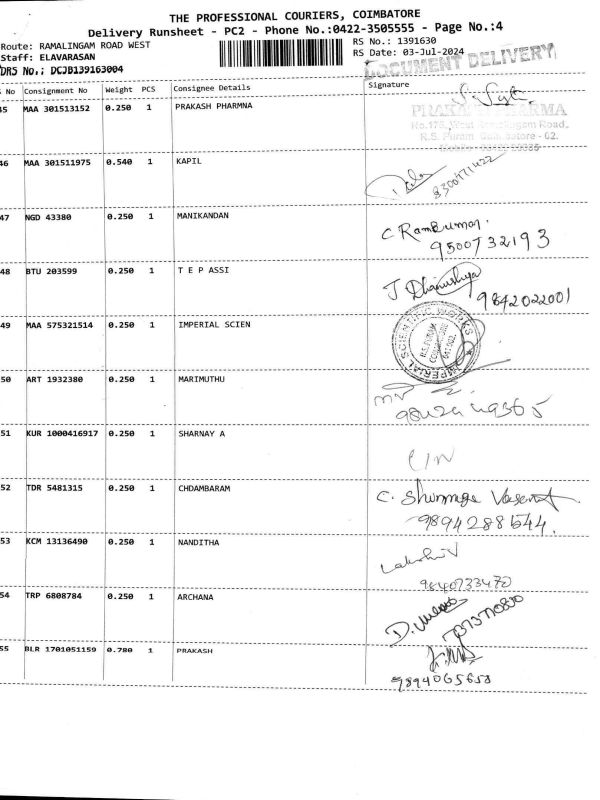 THE PROFESSIONAL COURIERS, COIMBATORE
Delivery Runsheet - PC2 - Phone No.:0422-3505555 - Page No.:4
Route: RAMALINGAM ROAD WEST RS No.: 1391630
Staff: ELAVARASAN RS Date: 03-Jul-2024
DRS No.; DCJB139163004 DOCUMENT DELIVERY
No Consignment No Weight PCS Consignee Details Signature
45 MAA 301513152 0.250 1 PRAKASH PHARMNA
PRAKASH PHARMA
R.S. Puram, Coimbatore - 02.
46 MAA 301511975 0.540 1 KAPIL
47 NGD 43380 0.250 1 MANIKANDAN
C Ramkumar.
9500732193
48 BTU 203599 0.250 1 T E P ASSI
J Dhanushya
9842022001
49 MAA 575321514 0.250 1 IMPERIAL SCIEN
IMPERIAL SCIENTIFIC WORKS
50 ART 1932380 0.250 1 MARIMUTHU
51 KUR 1000416917 0.250 1 SHARNAY A
52 TDR 5481315 0.250 1 CHDAMBARAM
C.
9894288644.
53 KCM 13136490 0.250 1 NANDITHA
Lakshmi V
9840733472
54 TRP 6808784 0.250 1 ARCHANA
D.
7373710830
55 BLR 1701051159 0.780 1 PRAKASH
9894065658